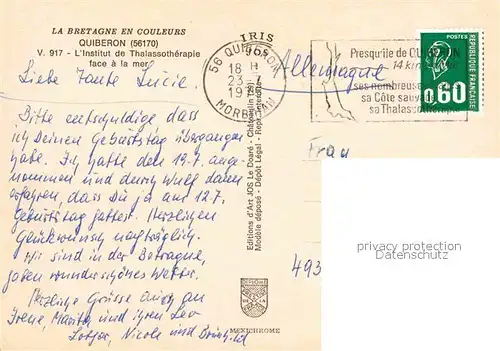 LA BRETAGNE EN COULEURS
QUIBERON (56170)
V. 917 - L'Institut de Thalassothérapie
face à la mer
Liebe Tante Lucie.
Bitte entschuldige dass
ich Deinen Geburtstag übergangen
habe. Ich hatte den 19.7. ange-
nommen und durch Wulf dann
erfahren, dass Du ja am 12.7.
Geburtstag hattest. Herzlichen
Glückwunsch nachträglich.
Wir sind in der Bretagne,
haben wunderschönes Wetter.
Herzliche Grüsse auch an
Irene, Marita und ihren Leo
Lothar, Nicole und Brünhild
IRIS
Editions d'Art JOS Le Doaré - Châteaulin
Modèle déposé - Dépôt Légal
MEXICHROME
56 QUIBERON
18 H
23-7
MORBIHAN
Presqu'île de QUIBERON
14 km
ses nombreuses
sa Côte sauvage
sa Thalassothérapie
POSTES
REPUBLIQUE FRANÇAISE
0,60
Allemagne
Frau
493
philatelie protection
Datenschutz